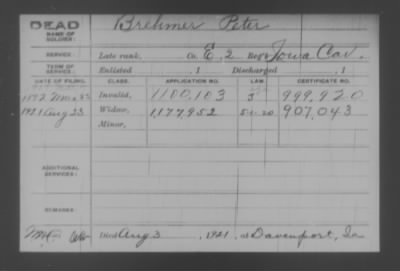 DEAD
NAME OF SOLDIER: Brehmer Peter
SERVICE: Late rank, Co. E, 2 Reg't Iowa Cav.
TERM OF SERVICE: Enlisted , 1 Discharged , 1
DATE OF FILING. CLASS. APPLICATION NO. LAW. CERTIFICATE NO.
Invalid, 1180,103 999,920
1921 Aug 23 Widow, 1,177,952 907,043
Minor,
ADDITIONAL SERVICES:
REMARKS:
Died Aug 3, 1921, at Davenport, Ia